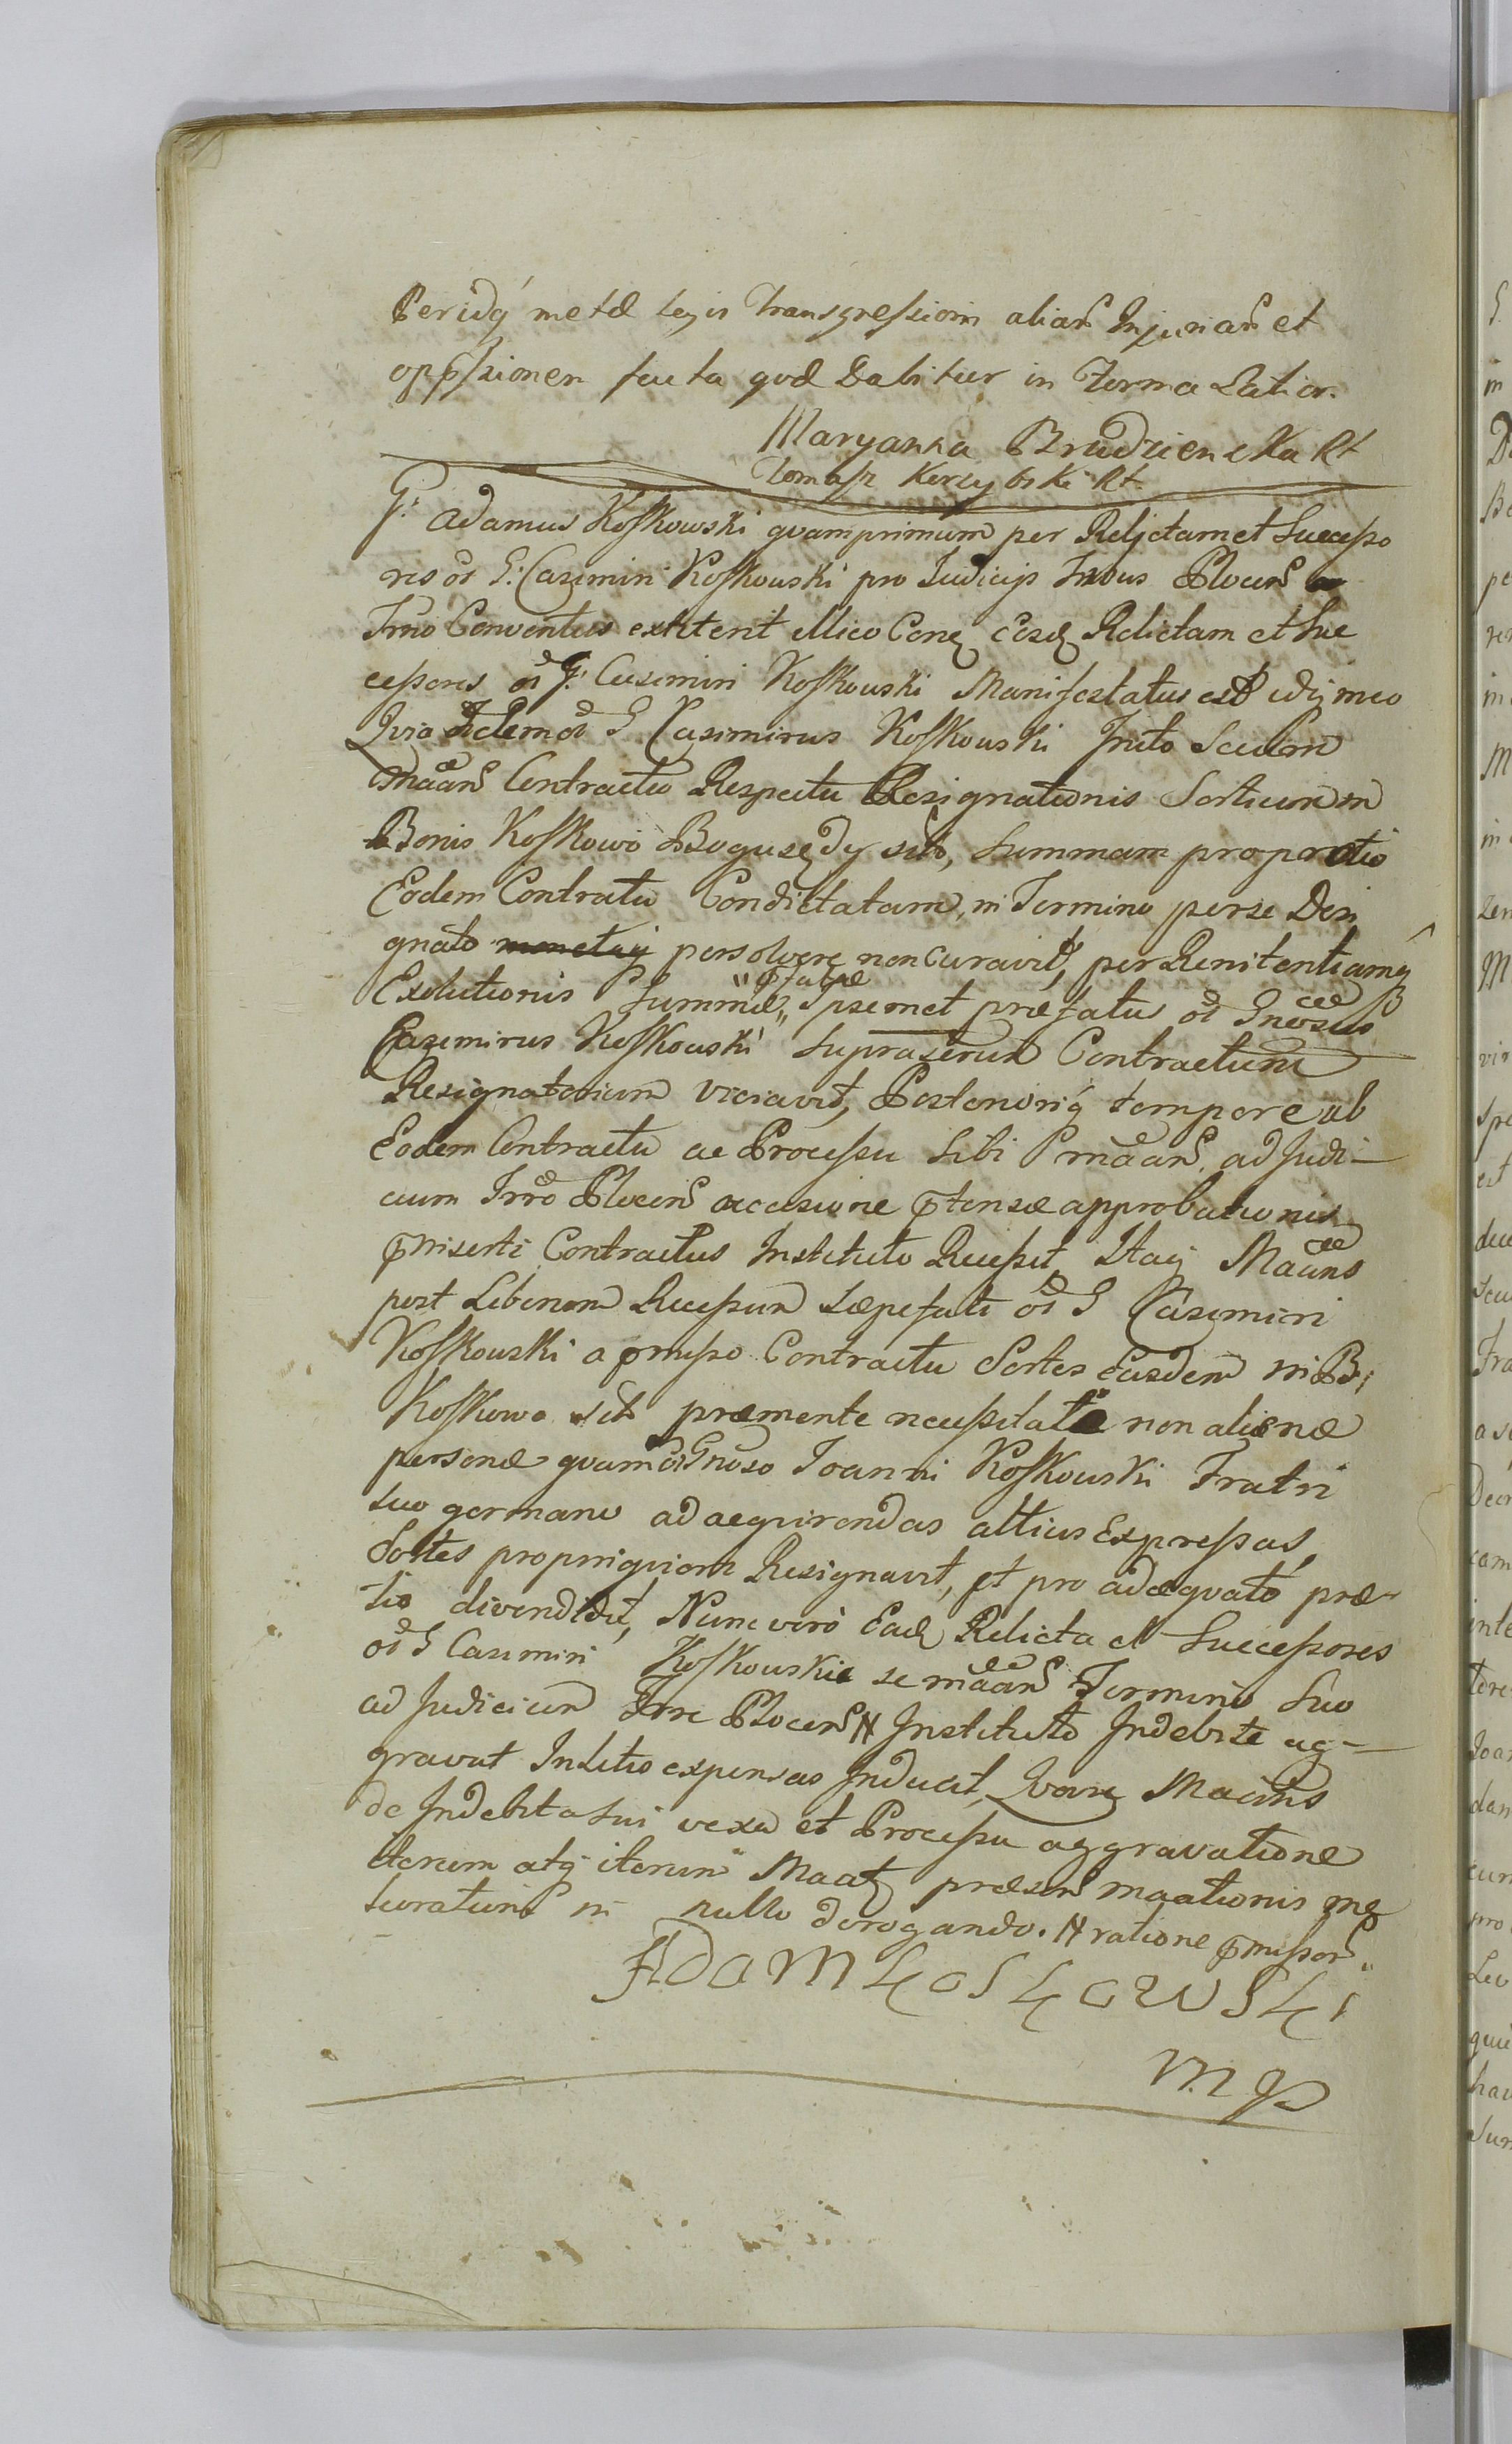 Peridq́ metæ legis Transgressionem aliar̃ Injuriar̃ et
opp̃ssionem facta qvæ Dabitur in Forma Latior.
Maryanna Brudzienska Rt
Tomasz Kerzybski Rt
G: Adamus Kosskowski qvamprimum per Relictam et Successo
res oĩ G: Casimiri Kosskowski pro Judicijs Trrbus Plocen̄
Trrio Conventus extiterit illico Coneꝫ Eosdꝫ Relictam et Suc
cessores oĩ G: Casimiri Kosskowski Manifestatus est idq́ meo
Qvia Idem oĩ G Casimirus Kosskowski Inito Secum
Mããn̄ Contractu Respectu Resignationis Sortium in
Bonis Kosskowo Bogusędy sit̃, Summam pro pretio
Eodem Contractu Condictatam, in Termino per se Desi
gnato persolvere non curavit, per Renitentiamqꝫ
Exolutionis Summæ "p̃fatæ" Ipsemet præfatus oĩ Gnerosus
Casimirus Kosskowski Supraserum Contractum
Resignatorium viciavit, Posterioriq́ tempore ab
Eodem Contractu ac Processu Sibi mããn̄ ad Judi-
cium Trrõ Plocen̄ occasione p̃tensæ approbationis
p̃inserti Contractus Instituto Recessit, Itaq́ Mããns
post Liberum Recessum sæpefati oĩ G Casimiri
Kosskowski a p̃misso Contractu Sortes Easdem in B:
Kosskowo sit̃ præmente necessitate non alienæ
personæ qvam oĩ Gnoso Joanni Kosskowski Fratri
suo germano ad acqvirendas altius Expressas
Sortes propinqviori Resignavit, et pro adæqvato præ-
tio divendidit, Nunc vero Eadꝫ Relicta et Successores
oĩ G Casimiri Kosskowski se mããn̄ Termino Suo
ad Judicium Trre Plocen̄ Instituto Indebite ag-
gravat In Litis expensas Inducit, Qvare Mããns
de Indebita sui vexa et Processu aggravatione
iterum atq́ iterum Maatꝫ præsen̄ maationis me
lioratione in nullo derogando. ratione p̃missor̃
ADAM KOSKOWSKI
mp